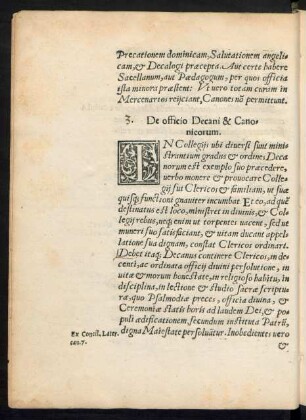 Precationem dominicam, Salutationem angeli-
cam, & Decalogi præcepta. Aut certe habere
Sacellanum, aut Pædagogum, per quos officia
ista minora præstent: Vt vero totam curam in
Mercenarios reijciant, Canones nõ permittunt.
3. De officio Decani & Cano-
nicorum.
IN Collegijs ubi diversi sunt mini-
strantium gradus & ordines, Deca
norum est exemplo suo præcedere,
verbo monere & provocare Colle-
gij sui Clericos & familiam, ut suæ
quisq; functioni gnaviter incumbat Et eo, ad quẽ
destinatus est loco, ministret in divinis, & Col-
legij rebus, neq; enim ut torpenter vacent, sed ut
muneri suo satisfaciant, & vitam ducant appel-
latione sua dignam, constat Clericos ordinari.
Debet itaq; Decanus continere Clericos, in de-
centi, ac ordinata officij divini persolutione, in
vitæ & morum honestate, in religioso habitu, in
disciplina, in lectione & studio sacræ scriptu-
ræ, quo Psalmodiæ preces, officia divina, &
Ceremoniæ Statis horis ad laudem Dei, & po-
puli ædificationem, secundum instituta Patrũ,
digna Maiestate persolvãtur. Inobedientes vero
&
Ex Concil. Later.
can. 7.